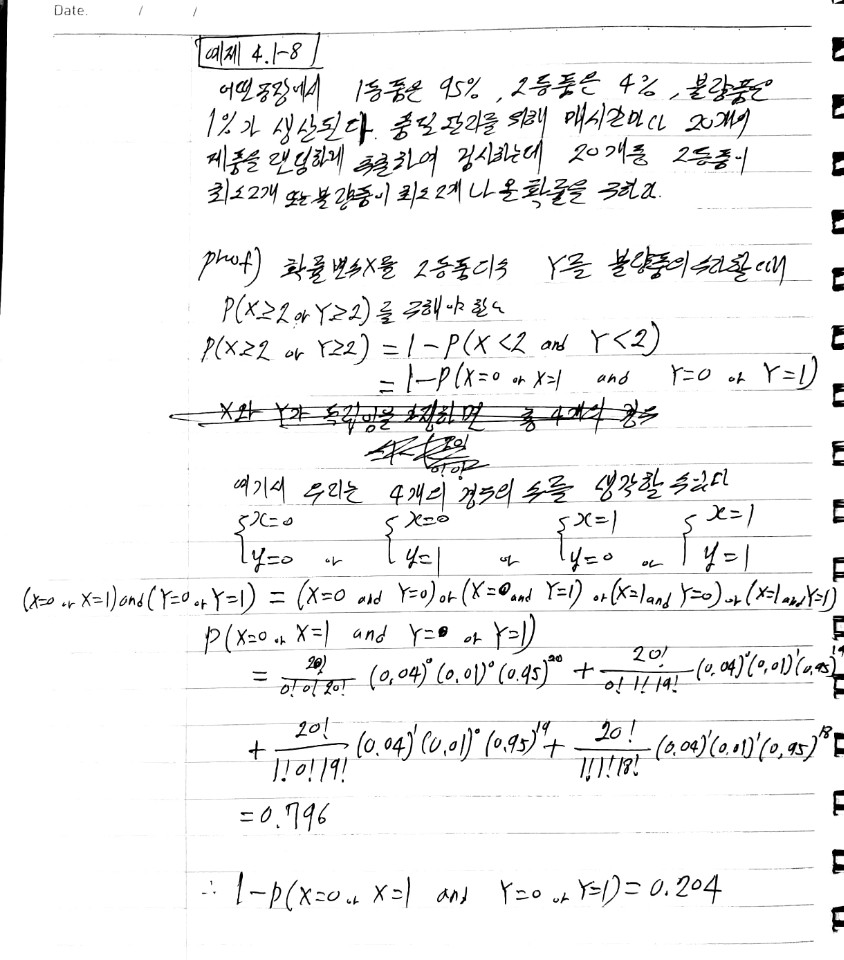 Date. / /
예제 4.1-8
어떤공장에서 1등품은 95%, 2등품은 4%, 불량품은
1%가 생산된다. 품질 관리를 위해 매시간마다 20개의
제품을 랜덤하게 추출하여 검사하는데 20개중 2등품이
최소2개 또는 불량품이 최소2개 나올 확률을 구하라.
proof) 확률변수X를 2등품의수 Y를 불량품의 수라할때
P(X≥2 or Y≥2)를 구해야 한다
P(X≥2 or Y≥2) = 1-P(X<2 and Y<2)
= 1-P(X=0 or X=1 and Y=0 or Y=1)
X와 Y가 독립임을 가정하면 총 4개의 경우
여기서 우리는 4개의 경우의 수를 생각할 수있다
{x=0 {x=0 {x=1 {x=1
{y=0 or {y=1 or {y=0 or {y=1
(X=0 or X=1)and(Y=0 or Y=1) = (X=0 and Y=0)or(X=0and Y=1) or(X=1and Y=0)or(X=1andY=1)
P(X=0 or X=1 and Y=0 or Y=1)
= 20!/0!0!20! (0.04)⁰(0.01)⁰(0.95)²⁰ + 20!/0!1!19! (0.04)⁰(0.01)¹(0.95)¹⁹
+ 20!/1!0!19! (0.04)¹(0.01)⁰(0.95)¹⁹ + 20!/1!1!18! (0.04)¹(0.01)¹(0,95)¹⁸
=0.796
∴ 1-P(X=0 or X=1 and Y=0 or Y=1)=0.204